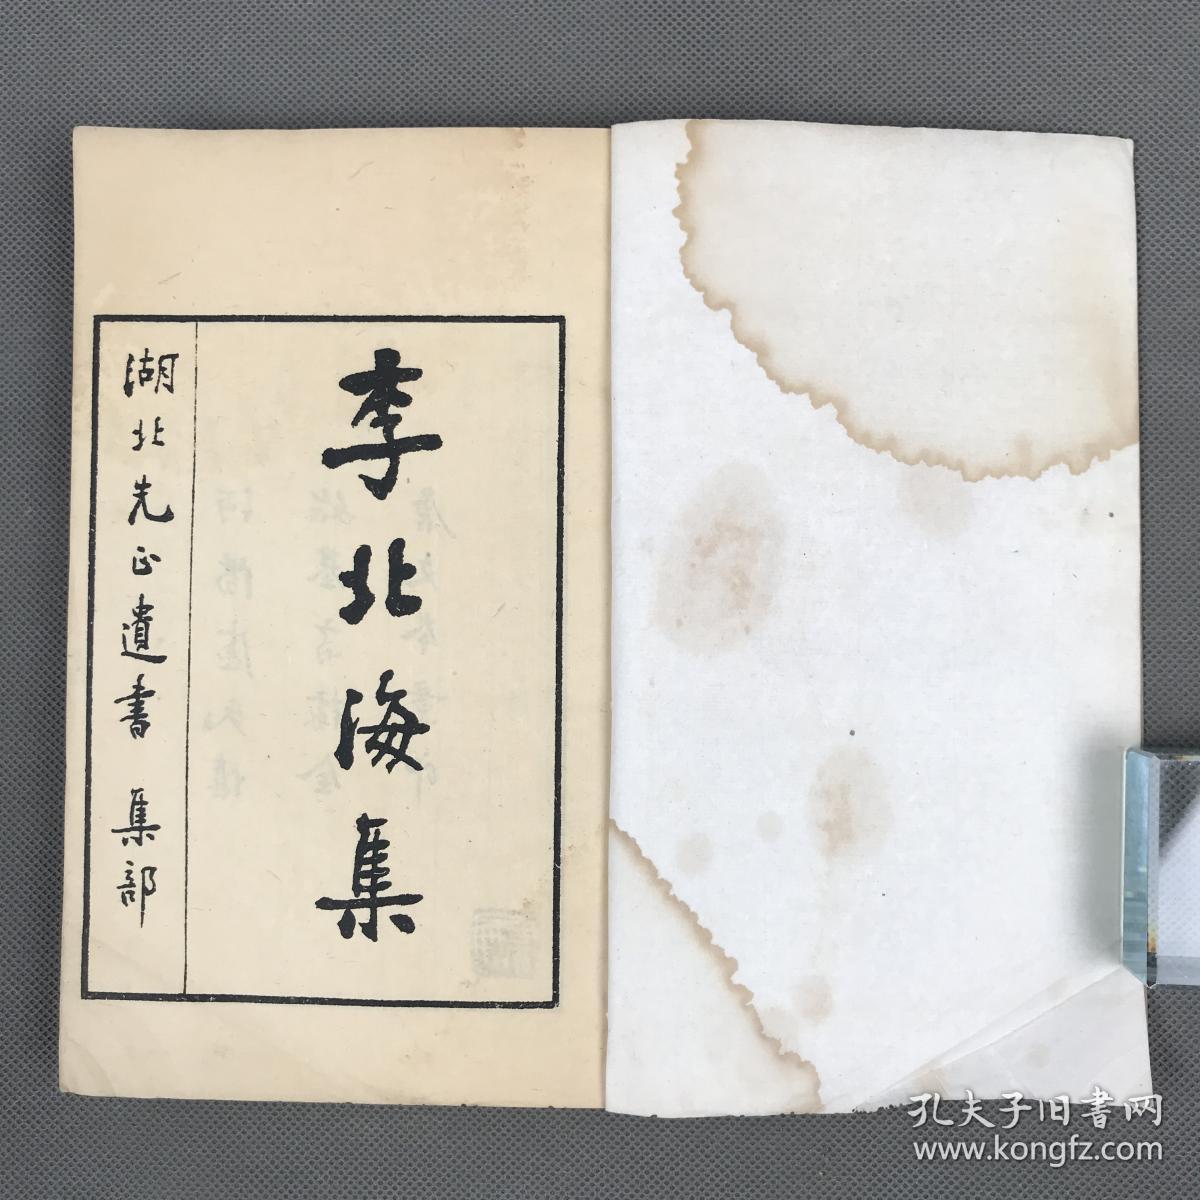 李北海集
湖北先正遺書 集部
孔夫子旧書网
www.kongfz.com